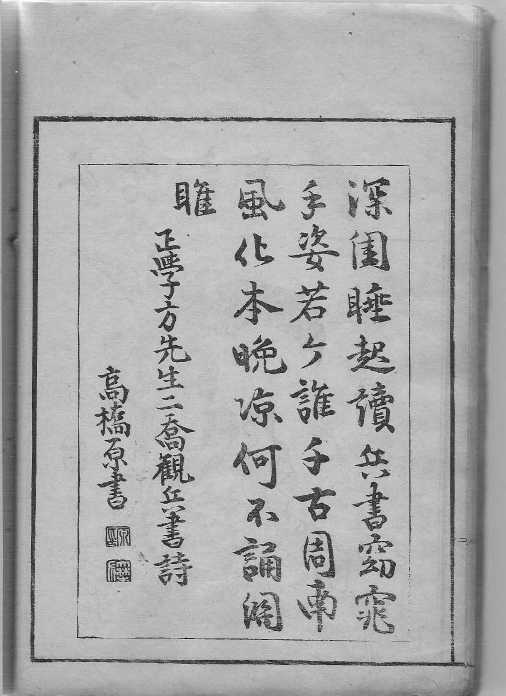 深閨睡起讀兵書窈窕
丰姿若个誰千古周南
風化本晩凉何不誦関
睢
正學方先生二喬観兵書詩
高橋原書